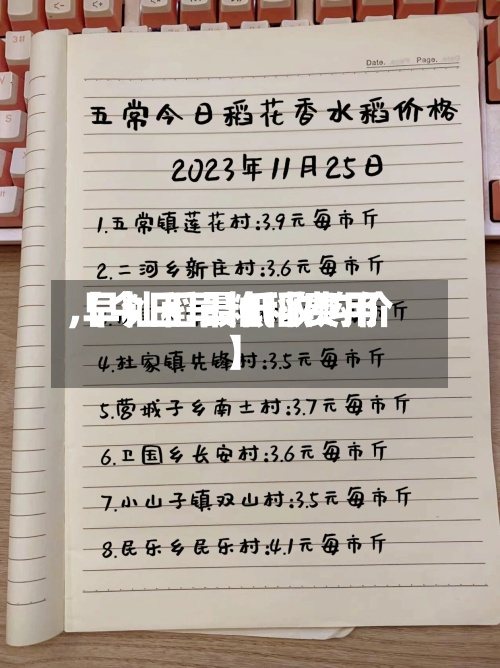 Date. Page.
五常今日稻花香水稻价格
2023年11月25日
1.五常镇莲花村:3.9元每市斤
2.二河乡新庄村:3.6元每市斤
】
4.杜家镇先锋村:3.5元每市斤
5.营城子乡南土村:3.7元每市斤
6.卫国乡长安村:3.6元每市斤
7.小山子镇双山村:3.5元每市斤
8.民乐乡民乐村:4.1元每市斤